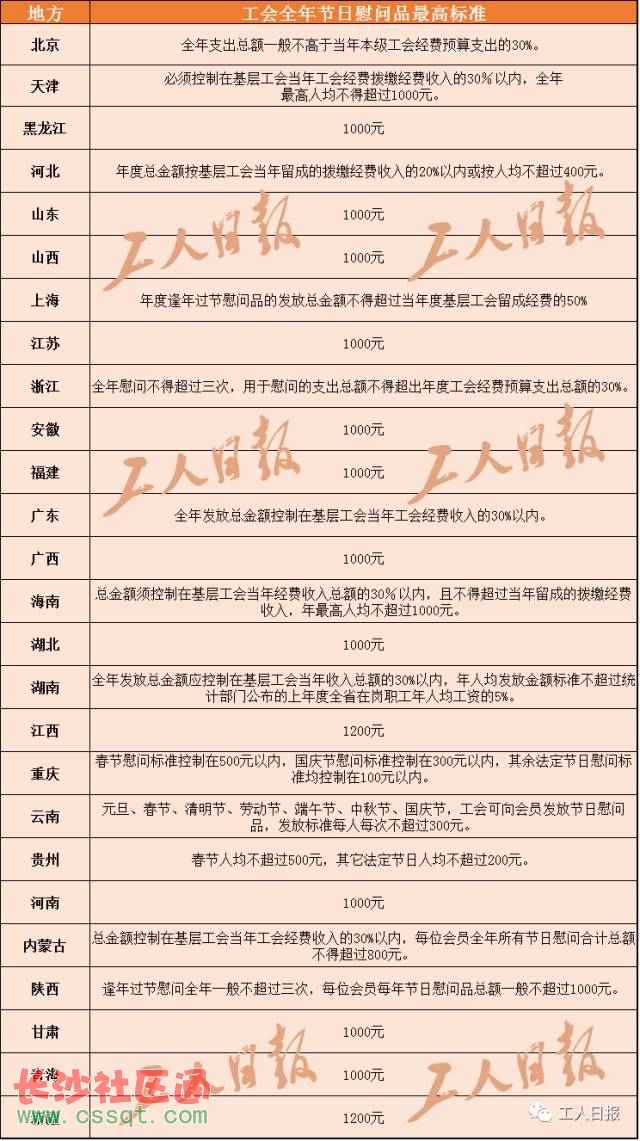 地方 工会全年节日慰问品最高标准
北京 全年支出总额一般不高于当年本级工会经费预算支出的30%。
天津 必须控制在基层工会当年工会经费拨缴经费收入的30％以内，全年
最高人均不得超过1000元。
黑龙江 1000元
河北 年度总金额按基层工会当年留成的拨缴经费收入的20%以内或按人均不超过400元。
山东 1000元
山西 1000元
上海 年度逢年过节慰问品的发放总金额不得超过当年度基层工会留成经费的50%
江苏 1000元
浙江 全年慰问不得超过三次，用于慰问的支出总额不得超出年度工会经费预算支出总额的30%。
安徽 1000元
福建 1000元
广东 全年发放总金额控制在基层工会当年工会经费收入的30%以内。
广西 1000元
海南 总金额须控制在基层工会当年经费收入总额的30％以内，且不得超过当年留成的拨缴经费
收入，年最高人均不超过1000元。
湖北 1000元
湖南 全年发放总金额应控制在基层工会当年收入总额的30%以内，年人均发放金额标准不超过统
计部门公布的上年度全省在岗职工年人均工资的5%。
江西 1200元
重庆 春节慰问标准控制在500元以内，国庆节慰问标准控制在300元以内，其余法定节日慰问标
准均控制在100元以内。
云南 元旦、春节、清明节、劳动节、端午节、中秋节、国庆节，工会可向会员发放节日慰问
品，发放标准每人每次不超过300元。
贵州 春节人均不超过500元，其它法定节日人均不超过200元。
河南 1000元
内蒙古 总金额控制在基层工会当年工会经费收入的30%以内，每位会员全年所有节日慰问合计总额
不得超过800元。
陕西 逢年过节慰问全年一般不超过三次，每位会员每年节日慰问品总额一般不超过1000元。
甘肃 1000元
青海 1000元
新疆 1200元
工人日报
工人日报
工人日报
工人日报
工人日报
工人日报
长沙社区通
www.cssqt.com
工人日报